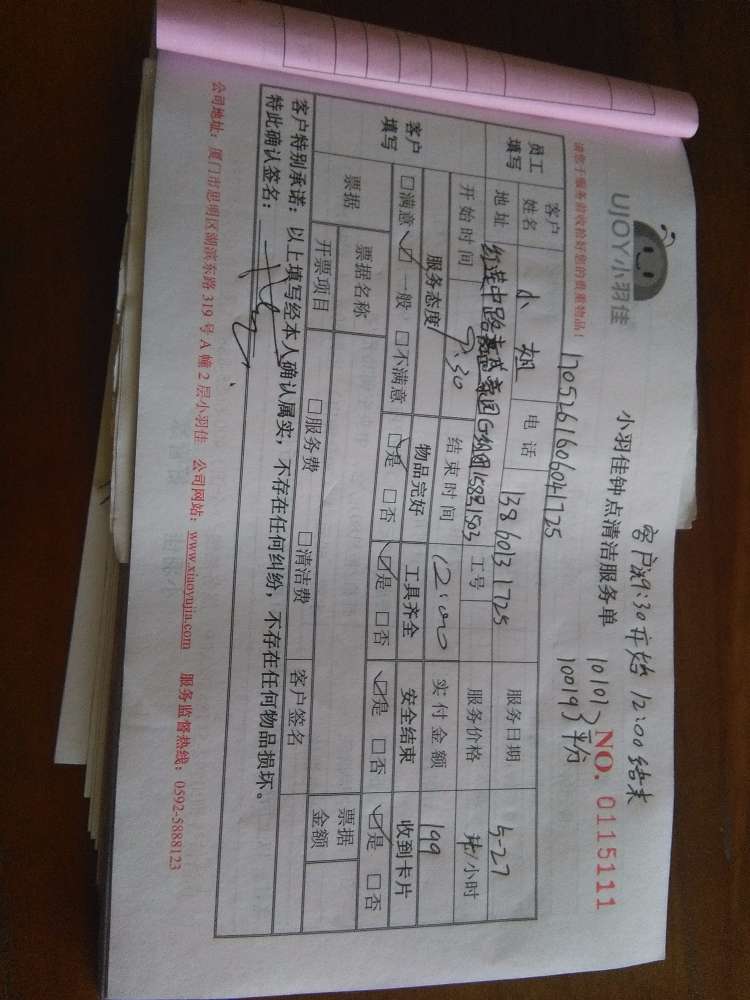 客户说9:30开始 12:00结束
UJOY小羽佳
小羽佳钟点清洁服务单
10101
10019 平分
NO. 0115111
请您于服务前收拾好您的贵重物品!
1705261606041725
员工填写 客户姓名 小姐 电话 13860131725 服务日期 5-27
地址 红莲中路 G组团 1503 工号 服务价格 /小时
开始时间 9:30 结束时间 12:00 实付金额 199
客户填写 服务态度 物品完好 工具齐全 安全结束 收到卡片
□满意 ☑一般 □不满意 ☑是 □否 ☑是 □否 ☑是 □否 ☑是 □否
票据 票据名称 □服务费 □清洁费 票据金额
开票项目 客户签名
客户特别承诺:以上填写经本人确认属实,不存在任何纠纷,不存在任何物品损坏。
特此确认签名:
公司地址:厦门市思明区湖滨东路 319 号 A 幢 2 层小羽佳 公司网站:www.xiaoyujia.com 服务监督热线:0592-5888123